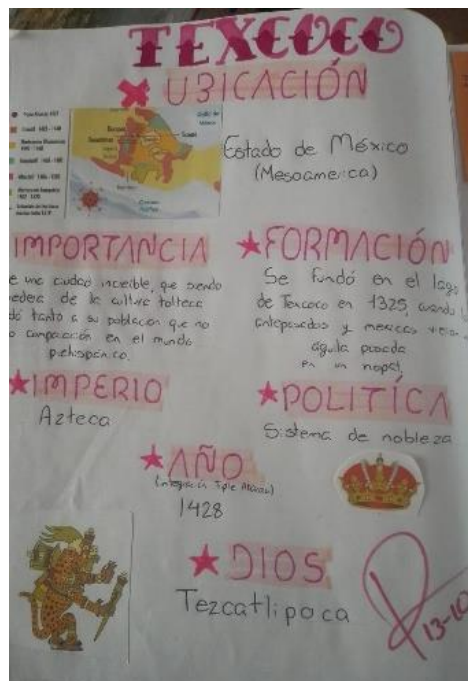 TEXCOCO
UBICACIÓN
Estado de México
(Mesoamerica)
IMPORTANCIA
e una ciudad increíble, que siendo
edera de la cultura tolteca
dó tanto a su poblacion que no
o comparación en el mundo
prehispánico.
FORMACIÓN
Se fundó en el lago
de Texcoco en 1325, cuando
antepasados y mexicas
águila posada
en un nopal.
IMPERIO
Azteca
POLITÍCA
Sistema de nobleza
AÑO
(integración Triple Alianza)
1428
DIOS
Tezcatlipoca
13-10